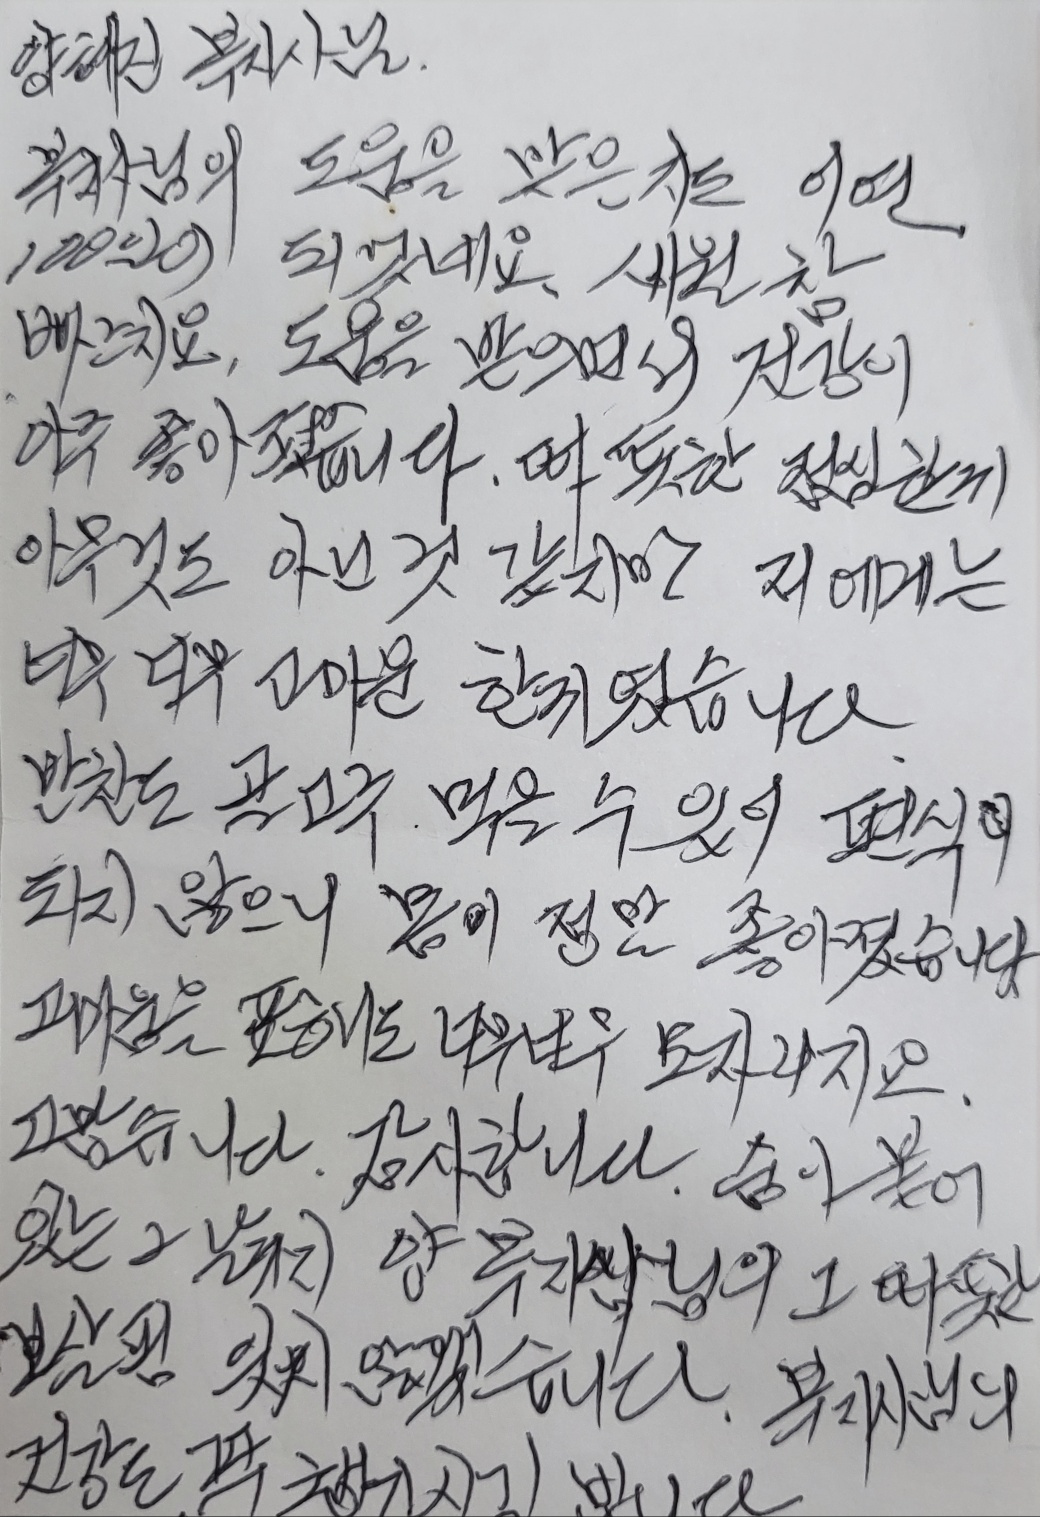 양혜진 복지사님.
복지사님의 도움을 받은지도 어언
100일이 되었네요. 세월 참
빠르지요. 도움을 받으면서 건강이
아주 좋아졌습니다. 따뜻한 점심 한끼
아무것도 아닌것 같지만 저에게는
너무 너무 고마운 한끼였습니다.
반찬도 골고루 먹을 수 있어 편식이
되지 않으니 몸이 정말 좋아졌습니다
고마움을 표현해도 너무너무 모자라지요.
고맙습니다. 감사합니다. 숨이 붙어
있는 그 날까지 양 복지사님의 그 따뜻한
보살핌 잊지 않겠습니다. 복지사님의
건강도 꼭 챙기시길 빕니다